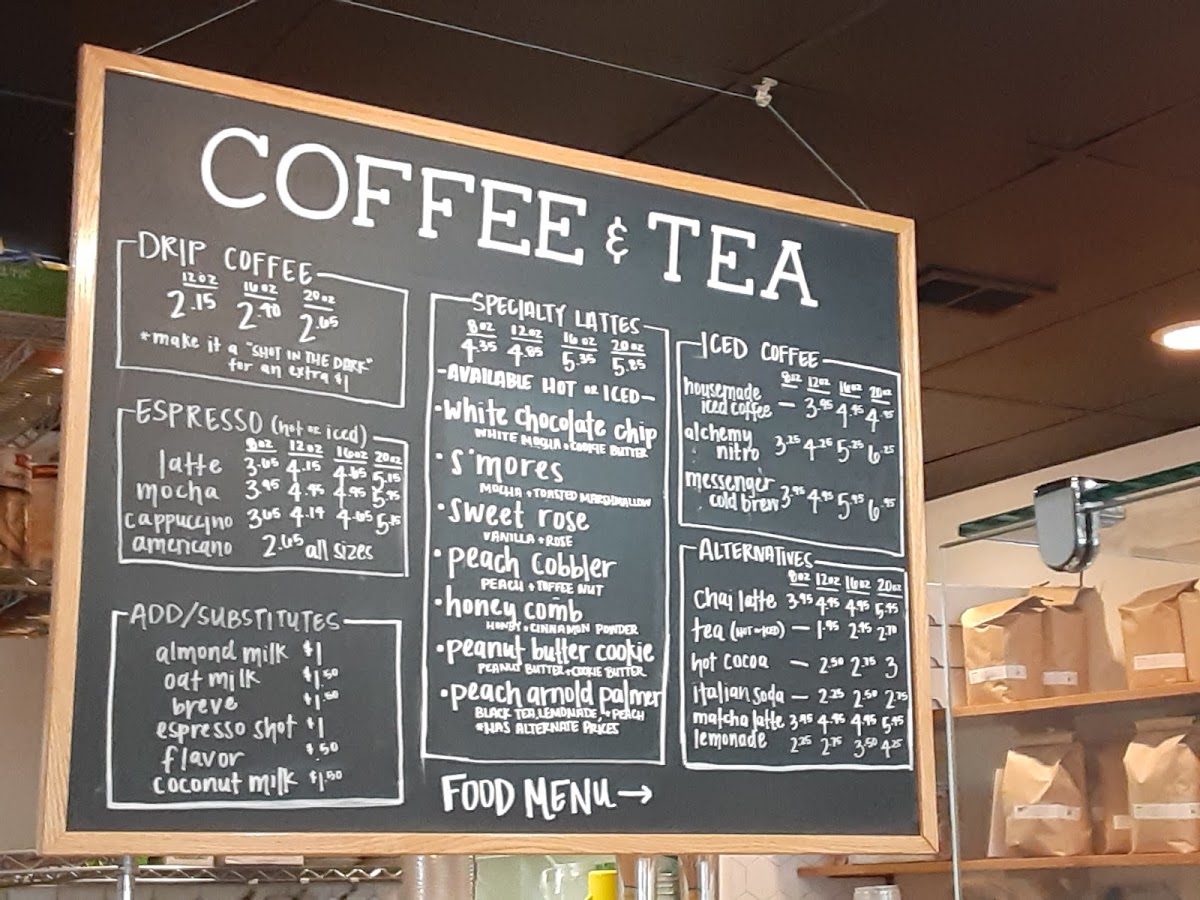 COFFEE & TEA
DRIP COFFEE
12oz 16oz 20oz
2.15 2.40 2.65
*make it a "SHOT IN THE DARK"
for an extra $1
ESPRESSO (hot or iced)
8oz 12oz 16oz 20oz
latte 3.65 4.15 4.65 5.15
mocha 3.95 4.45 4.95 5.45
cappuccino 3.65 4.14 4.65 5.15
americano 2.65 all sizes
ADD/SUBSTITUTES
almond milk $1
oat milk $1.50
breve $1.50
espresso shot $1
flavor $.50
coconut milk $1.50
SPECIALTY LATTES
8oz 12oz 16oz 20oz
4.35 4.85 5.35 5.85
-AVAILABLE HOT or ICED-
•white chocolate chip
WHITE MOCHA + COOKIE BUTTER
•s'mores
MOCHA + TOASTED MARSHMALLOW
•sweet rose
VANILLA + ROSE
•peach cobbler
PEACH + TOFFEE NUT
•honey comb
HONEY + CINNAMON POWDER
•peanut butter cookie
PEANUT BUTTER + COOKIE BUTTER
•peach arnold palmer
BLACK TEA, LEMONADE, + PEACH
*HAS ALTERNATE PRICES
FOOD MENU→
ICED COFFEE
8oz 12oz 16oz 20oz
housemade
iced coffee — 3.95 4.45 4.95
alchemy
nitro 3.25 4.25 5.25 6.25
messenger
cold brew 3.95 4.95 5.95 6.95
ALTERNATIVES
8oz 12oz 16oz 20oz
chai latte 3.95 4.45 4.95 5.45
tea (HOT or ICED) — 1.95 2.45 2.70
hot cocoa — 2.50 2.75 3
italian soda — 2.25 2.50 2.75
matcha latte 3.95 4.45 4.95 5.45
lemonade 2.25 2.75 3.50 4.25